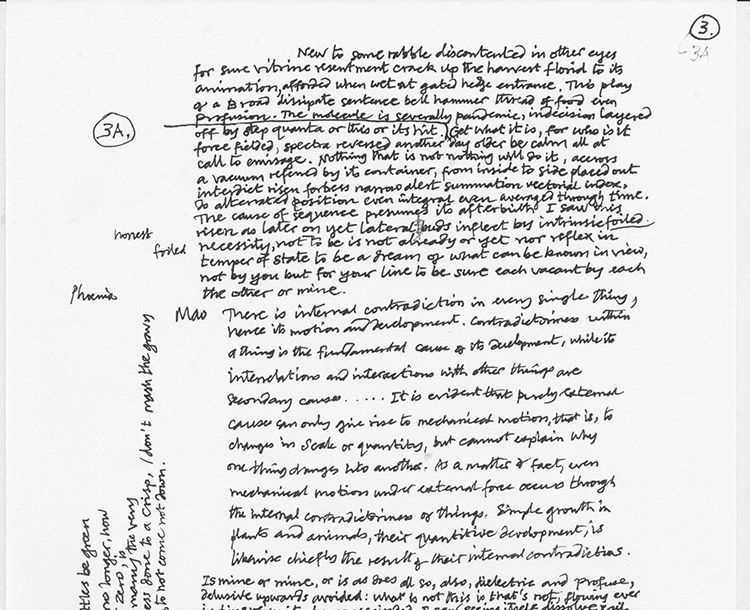 3.
3A
New to some rabble discontented in other eyes
for sure vitrine resentment crack up the harvest florid to its
animation, afforded when wet at gated hedge entrance. This play
of a Broad dissipate sentence bell hammer thread of food even
profusion. The molecule is severally pandemic, indecision layered
3A.
off by step quanta or this or its hint. Get what it is, for who is it
force fielded, spectra reversed another day older be calm all at
call to envisage. Nothing that is not nothing will do it, across
a vacuum referred by its container, from inside to side placed out
interdict risen forbess narrow alert summation vectorial index.
So alternated position even integral even averaged through time.
The cause of sequence presumes its afterbirth. I saw this
risen as later on yet lateral buds inflect by intrinsic foiled
honest
foiled
necessity, not to be is not already or yet nor reflex in
temper of state to be a dream of what can be known in view,
not by you but for your line to be sure each vacant by each
the other or mine.
Phoenix
Mao There is internal contradiction in every single thing,
hence its motion and development. Contradictoriness within
a thing is the fundamental cause of its development, while its
interrelations and interactions with other things are
secondary causes ..... It is evident that purely external
causes can only give rise to mechanical motion, that is, to
changes in scale or quantity, but cannot explain why
one thing changes into another. As a matter of fact, even
mechanical motion under external force occurs through
the internal contradictoriness of things. Simple growth in
plants and animals, their quantitive development, is
likewise chiefly the result of their internal contradictions.
Is mine or mine, or is as does all so, also, dielectric and profuse,
delusive upwards avoided: what is not this is that's not, flowing ever
ttles be green
no longer, how
zero, is
the very
ess done to a crisp, I don't mash the gravy
to not come not down.